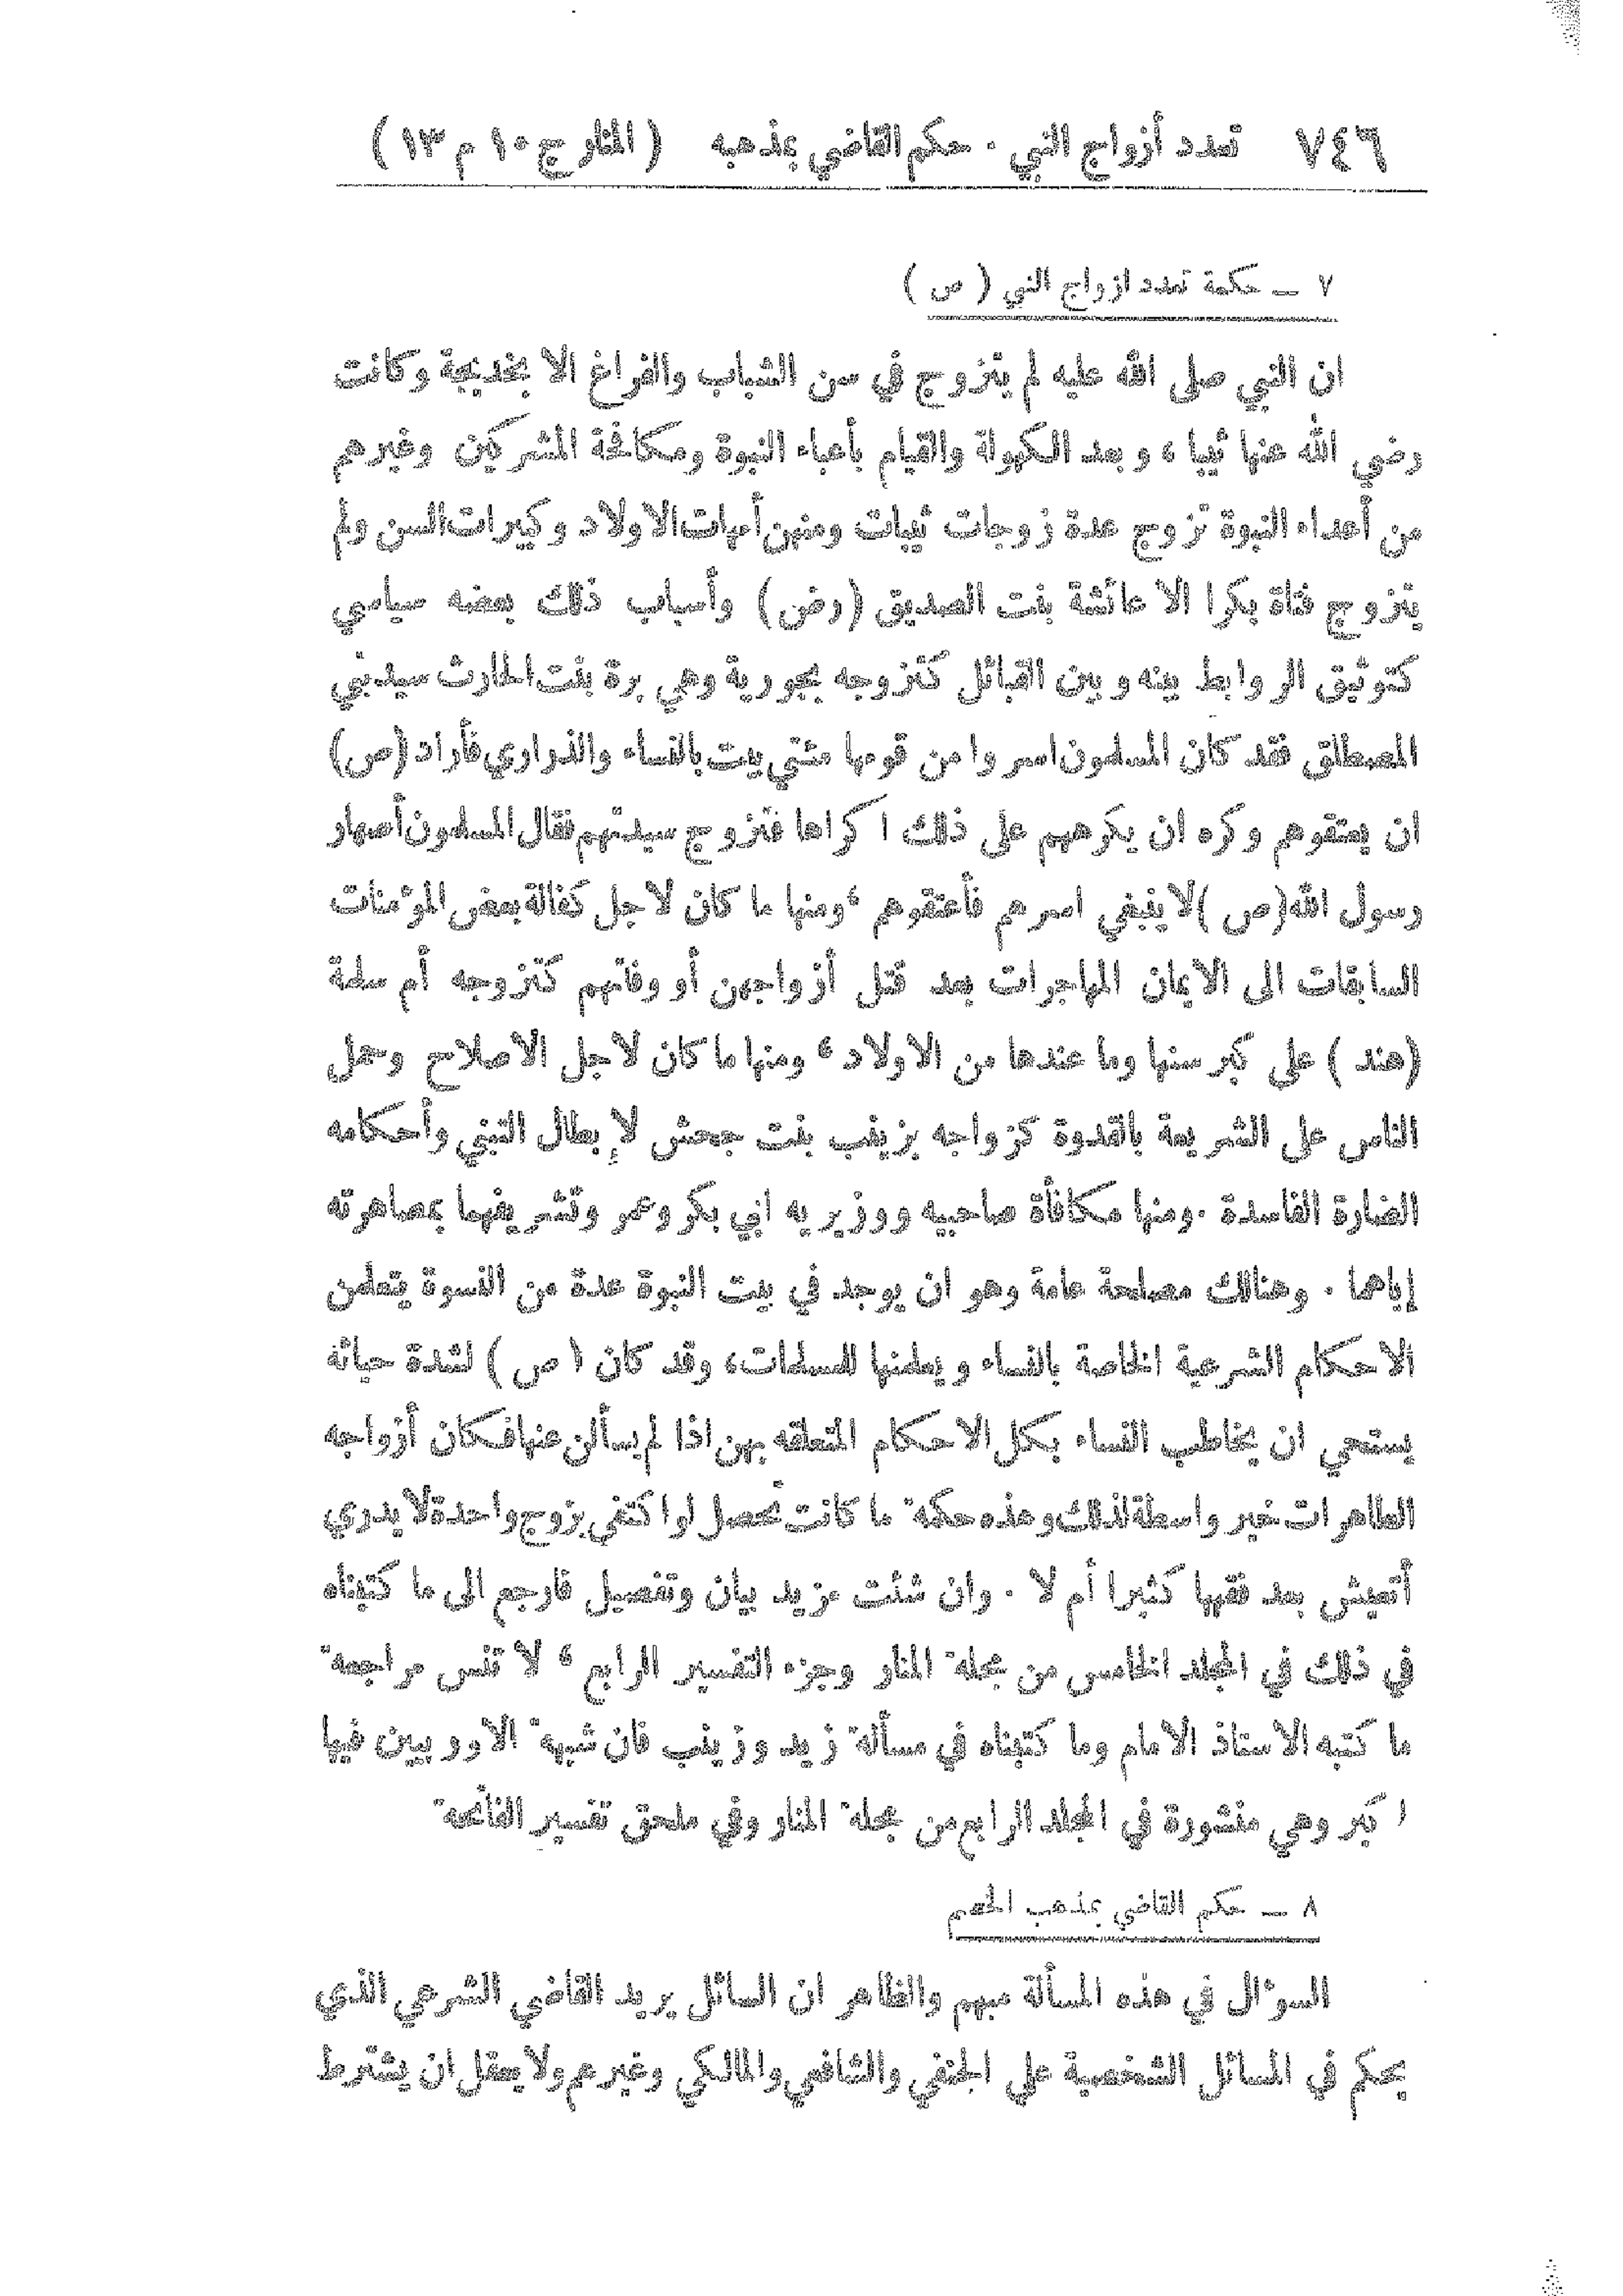 ٧٤٦ تعدد أزواج النبي . حكم القاضي بمذهبه ( المنار ج ١٠ م ١٣ )
٧ — حكمة تعدد ازواج النبي ( ص )
ان النبي صلى الله عليه لم يتزوج في سن الشباب والفراغ الا بخديجة وكانت
رضي الله عنها ثيبا ، وبعد الكهولة والقيام بأعباء النبوة ومكافحة المشركين وغيرهم
من أعداء النبوة تزوج عدة زوجات ثيبات ومنهن أمهات الاولاد وكبيرات السن ولم
يتزوج فتاة بكرا الا عائشة بنت الصديق (رض) وأسباب ذلك بعضه سياسي
كتوثيق الروابط بينه وبين القبائل كتزوجه بجورية وهي برة بنت الحارث سيد بني
المصطلق فقد كان المسلمون اسروا من قومها مئتي بيت بالنساء والذراري فأراد (ص)
ان يعتقوهم وكره ان يكرههم على ذلك اكراها فتزوج سيدتهم فقال المسلمون أصهار
رسول الله (ص) لا ينبغي اسرهم فأعتقوهم ، ومنها ما كان لاجل كفالة بعض المؤمنات
السابقات الى الايمان المهاجرات بعد قتل أزواجهن أو وفاتهم كتزوجه أم سلمة
(هند ) على كبر سنها وما عندها من الاولاد ، ومنها ما كان لاجل الاصلاح وحمل
الناس على الشريعة بالقدوة كزواجه بزينب بنت جحش لإبطال التبني وأحكامه
الضارة الفاسدة . ومنها مكافأة صاحبيه ووزيريه ابي بكر وعمر وتشريفهما بمصاهرته
إياهما . وهنالك مصلحة عامة وهو ان يوجد في بيت النبوة عدة من النسوة يتعلمن
الاحكام الشرعية الخاصة بالنساء ويعلمنها للمسلمات، وقد كان ( ص ) لشدة حيائه
يستحي ان يخاطب النساء بكل الاحكام المتعلقه بهن اذا لم يسألن عنها فكان أزواجه
الطاهرات خير واسطة لذلك وهذه حكمة ما كانت تحصل لو اكتفى بزوج واحدة لا يدري
أتعيش بعد فقهها كثيرا أم لا . وان شئت مزيد بيان وتفصيل فارجع الى ما كتبناه
في ذلك في المجلد الخامس من مجلة المنار وجزء التفسير الرابع ، لا تنس مراجعة
ما كتبه الاستاذ الامام وما كتبناه في مسألة زيد وزينب فان شبهة الاوروبيين فيها
اكبر وهي منشورة في المجلد الرابع من مجلة المنار وفي ملحق تفسير الفاتحة
٨ — حكم القاضي بمذهب الخصم
السؤال في هذه المسألة مبهم والظاهر ان السائل يريد القاضي الشرعي الذي
يحكم في المسائل الشخصية على الحنفي والشافعي والمالكي وغيرهم ولا يعقل ان يشترط